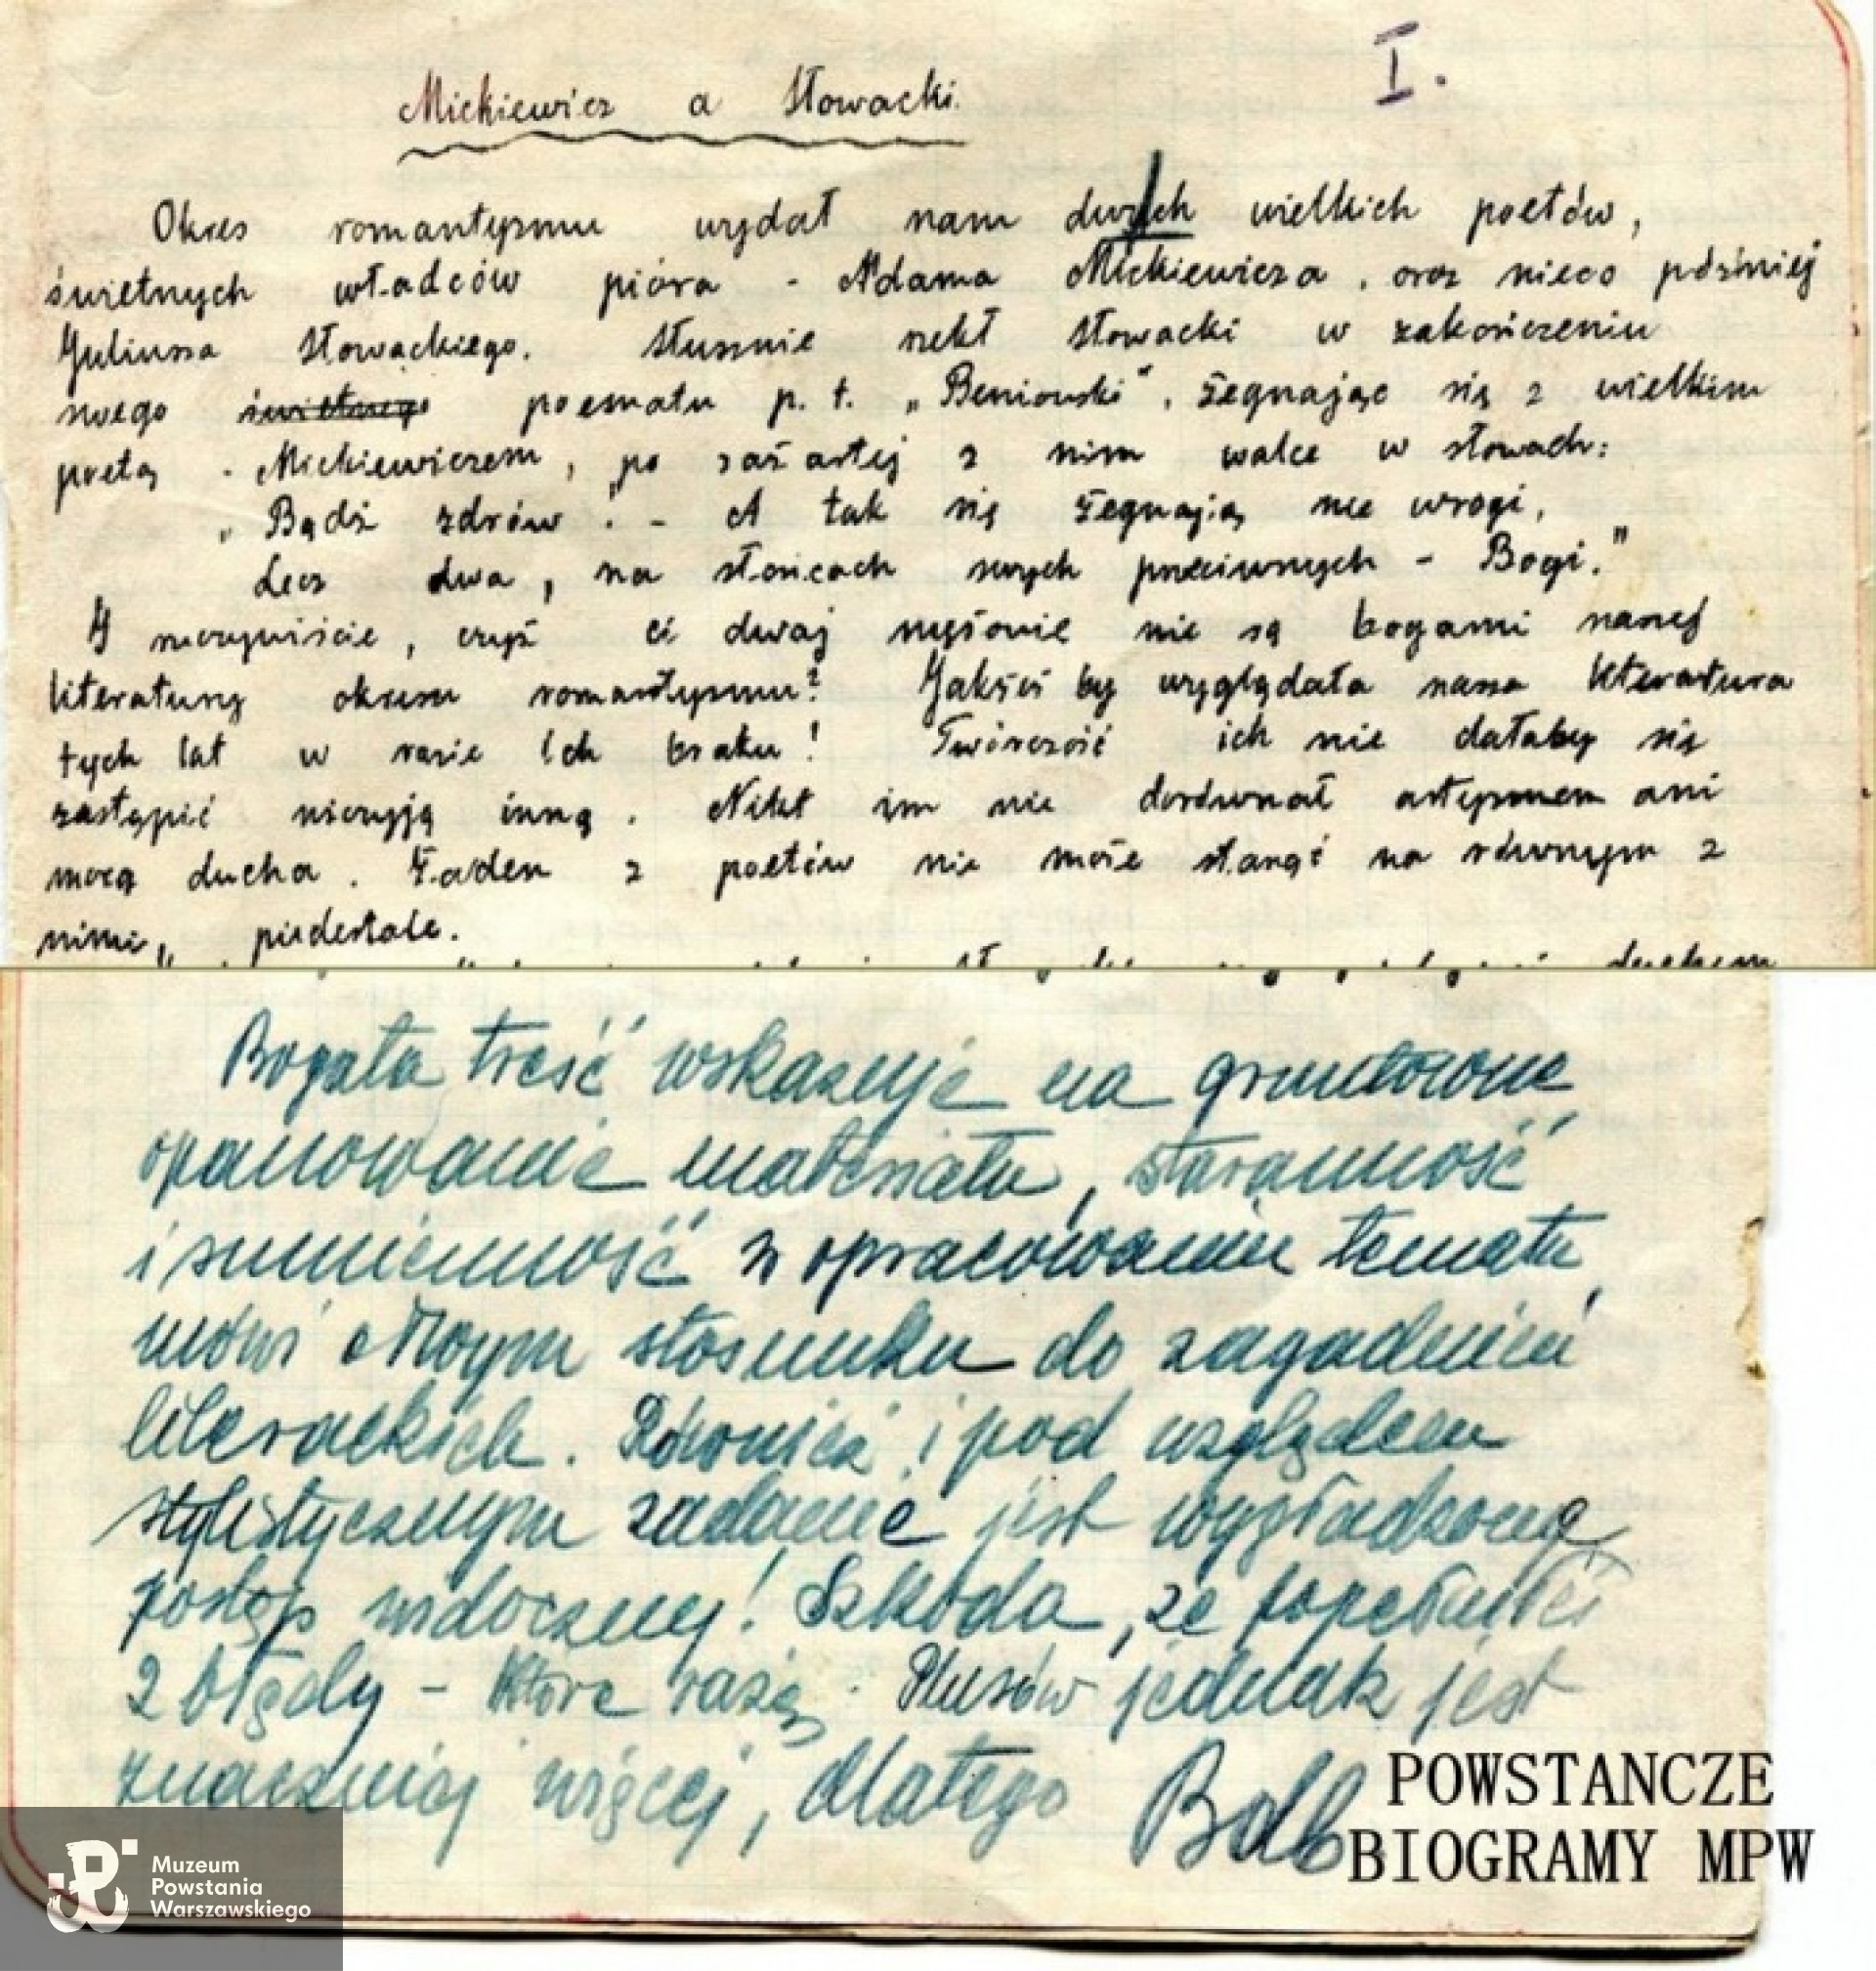 I.
Mickiewicz a Słowacki.
Okres romantyzmu wydał nam dwóch wielkich poetów,
świetnych władców pióra - Adama Mickiewicza, oraz nieco później
Juliusza Słowackiego. Słusznie rzekł Słowacki w zakończeniu
swego świetnego poematu p. t. „Beniowski", żegnając się z wielkim
poetą - Mickiewiczem, po zażartej z nim walce w słowach:
„Bądź zdrów. - A tak się żegnają nie wrogi,
Lecz dwa, na słońcach swych przeciwnych - Bogi."
I rzeczywiście, czyż ci dwaj mężowie nie są bogami naszej
literatury okresu romantyzmu? Jakżeż by wyglądała nasza literatura
tych lat w razie Ich braku! Twórczość ich nie dałaby się
zastąpić niczyją inną. Nikt im nie dorównał artyzmem ani
mocą ducha. Żaden z poetów nie może stanąć na równym z
nimi „ piedestale.
duchem
Bogata treść wskazuje na gruntowne
opanowanie materiału, staranność
i sumienność w opracowaniu tematu,
mówi o Twoym stosunku do zagadnień
literackich. Również i pod względem
stylistycznym zadanie jest wygładzone
postęp widoczny! Szkoda, że popełniłeś
2 błędy - które rażą. Plusów jednak jest
znacznie więcej, dlatego Bdb
POWSTANCZE
BIOGRAMY MPW
Muzeum
Powstania
Warszawskiego